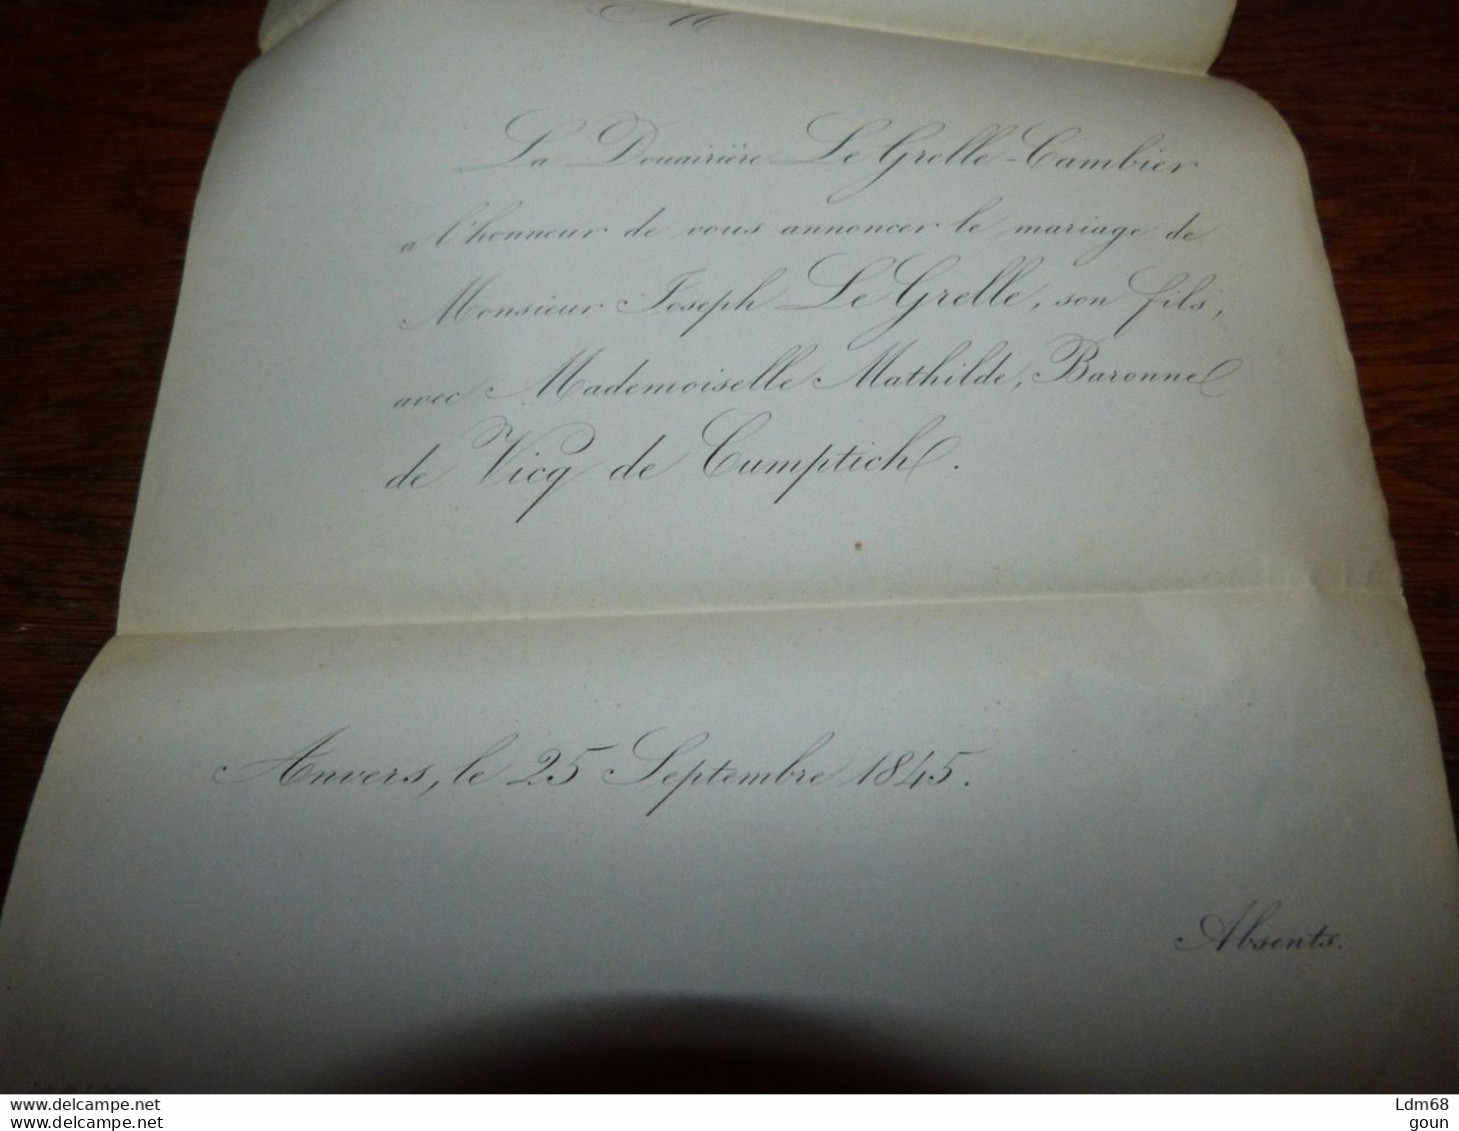 M
La Douairière Le Grelle-Cambier
a l'honneur de vous annoncer le mariage de
Monsieur Joseph Le Grelle, son fils,
avec Mademoiselle Mathilde, Baronne
de Vicq de Cumptich.
Anvers, le 25 Septembre 1845.
Absents.
www.delcampe.net
www.delcampe.net
Ldm68
goun